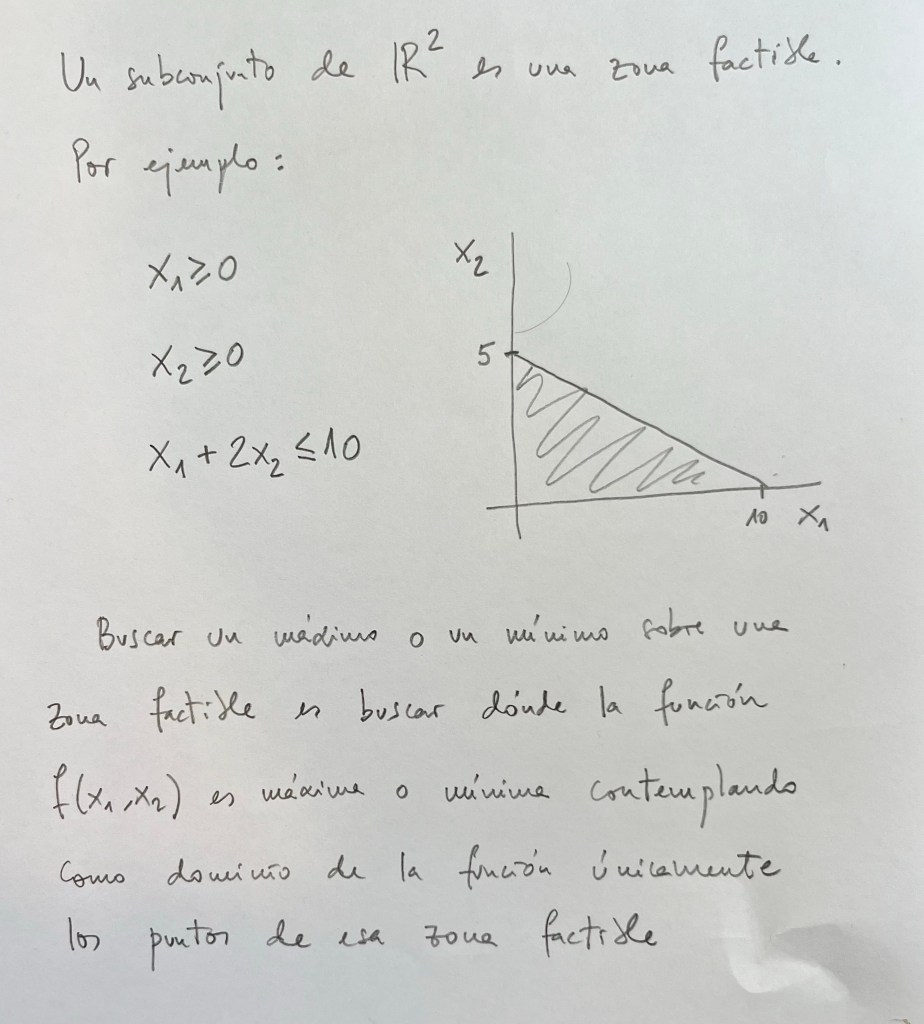 Un subconjunto de ℝ² es una zona factible.
Por ejemplo:
x₁ ≥ 0
x₂ ≥ 0
x₁ + 2x₂ ≤ 10
x₂
5
10 x₁
Buscar un máximo o un mínimo sobre una
zona factible es buscar dónde la función
f(x₁, x₂) es máxima o mínima contemplando
como dominio de la función únicamente
los puntos de esa zona factible